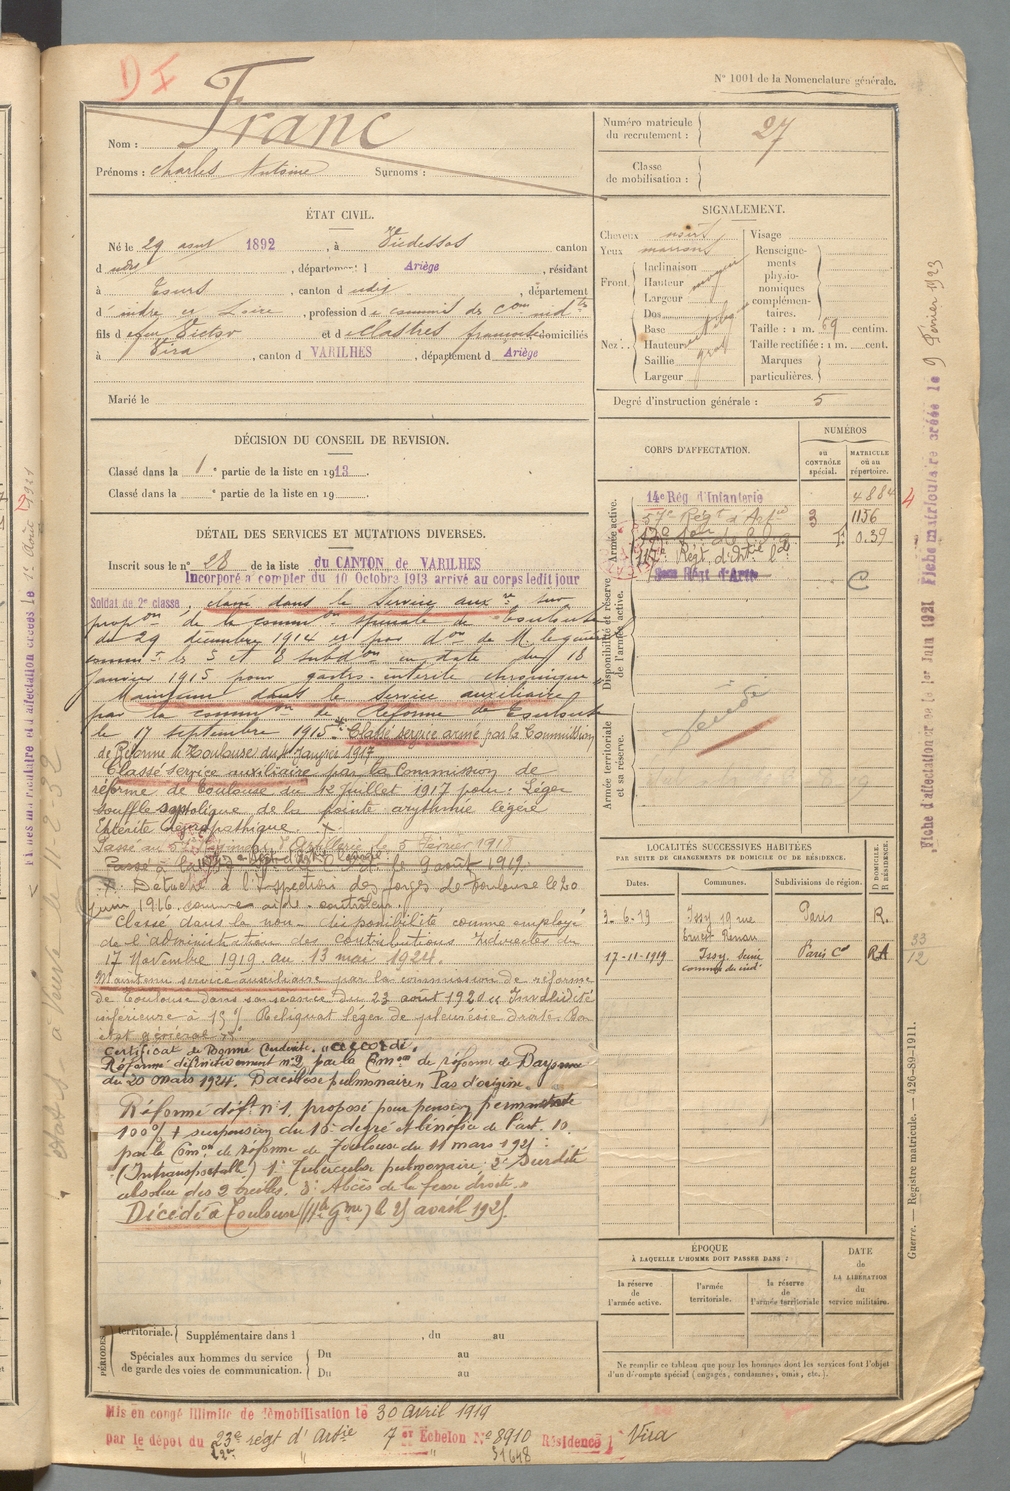 D I
N° 1001 de la Nomenclature générale.
Nom : Franc
Prénoms : Charles Antoine Surnoms :
Numéro matricule du recrutement : 27
Classe de mobilisation :
ÉTAT CIVIL.
Né le 29 aout 1892, à Vicdessos canton
d udit, département d Ariège, résidant
à Tours, canton d udit, département
d'indre et Loire, profession de commis des Con ind tes
fils d efeu Victor et d e Clastres françoise domiciliés
à Vira, canton d VARILHES, département d Ariège
Marié le
SIGNALEMENT.
Cheveux noirs
Yeux marrons
Front. Inclinaison
Hauteur moyen
Largeur
Nez : Dos
Base
Hauteur
Saillie gros
Largeur
Visage
Renseignements physionomiques complémentaires.
Taille : 1 m. 69 centim.
Taille rectifiée : 1 m. cent.
Marques particulières.
Degré d'instruction générale : 5
DÉCISION DU CONSEIL DE REVISION.
Classé dans la 1e partie de la liste en 1913.
Classé dans la e partie de la liste en 19
CORPS D'AFFECTATION.
NUMÉROS
au CONTRÔLE spécial.
MATRICULE ou au répertoire.
Armée active.
14e Rég. d'Infanterie 4884
57e Régt d'Artie 1156
117e Régt d'Artie Lde
Disponibilité et réserve de l'armée active.
Armée territoriale et sa réserve.
DÉTAIL DES SERVICES ET MUTATIONS DIVERSES.
Inscrit sous le n° 28 de la liste du CANTON de VARILHES
Incorporé à compter du 10 Octobre 1913 arrivé au corps ledit jour
Soldat de 2e classe, classé dans le service auxre sur
propon de la common spéciale de Toulouse
du 29 décembre 1914 et par don de M. le général
commt les 5 et 8 subdon en date du 18
janvier 1915 pour gastro-intérite chronique
Maintenu dans le service auxiliaire
par la common de Réforme de Toulouse
le 17 septembre 1915 Classé service armé par la Commission
de Réforme de Toulouse du Janvier 1917
Classé service auxiliaire par la Commission de
réforme de Toulouse du 12 juillet 1917 pour : Léger
souffle systolique de la pointe arythmie légère
Entérite
Passé au 57e Régiment d'Artillerie le 5 Février 1918
Passé à le 9 août 1919.
Détaché à l'Inspection des forges de Toulouse le 20
juin 1916 comme aide-contrôleur.
Classé dans la non-disponibilité comme employé
de l'administration des contributions Indirectes du
17 Novembre 1919 au 13 mai 1924.
Maintenu service auxiliaire par la commission de réforme
de Toulouse dans sa séance du 23 aout 1920 Invalidité
inférieure à 15% Reliquat léger de pleurésie droite. Bon
état général
Certificat de Bonne Conduite. "accordé"
Réformé définitivement n°2 par la Comon de réforme de Bayonne
du 20 mars 1924. Bacillose pulmonaire. Pas d'origine.
Réformé déft n°1, proposé pour pension permanente
100% + suspension du 15e degré et bénéfice de l'art. 10.
par la Comon de réforme de Toulouse du 11 mars 1925 :
(Intransportable) 1° Tuberculose pulmonaire ; 2° Surdité
absolue des 2 oreilles. 3° Abcès de la fesse droite.
Décédé à Toulouse (Hte Gne) le 25 avril 1925.
LOCALITÉS SUCCESSIVES HABITÉES
PAR SUITE DE CHANGEMENTS DE DOMICILE OU DE RÉSIDENCE.
Dates. Communes. Subdivisions de région. D DOMICILE. R RÉSIDENCE.
3-6-19 Issy 19 rue Ernest Renan Paris R.
17-11-1919 Issy. Seine commis des ind. Paris Cal RA
ÉPOQUE
À LAQUELLE L'HOMME DOIT PASSER DANS :
la réserve de l'armée active.
l'armée territoriale.
la réserve de l'armée territoriale
DATE de LA LIBÉRATION du service militaire.
Ne remplir ce tableau que pour les hommes dont les services font l'objet
d'un décompte spécial (engagés, condamnés, omis, etc.).
PÉRIODES
territoriale. Supplémentaire dans l , du au
Spéciales aux hommes du service
de garde des voies de communication.
Du au
Du au
Mis en congé illimité de démobilisation le 30 Avril 1919
par le dépôt du 23e régt d'Artie 7 er Echelon N° 8910 Résidence Vira
31648
Fiche d'affectation créée le 1er Juin 1921 Fiche matriculaire créée le 9 Février 1923
Guerre. — Registre matricule. — 426-89-1911.
33
12